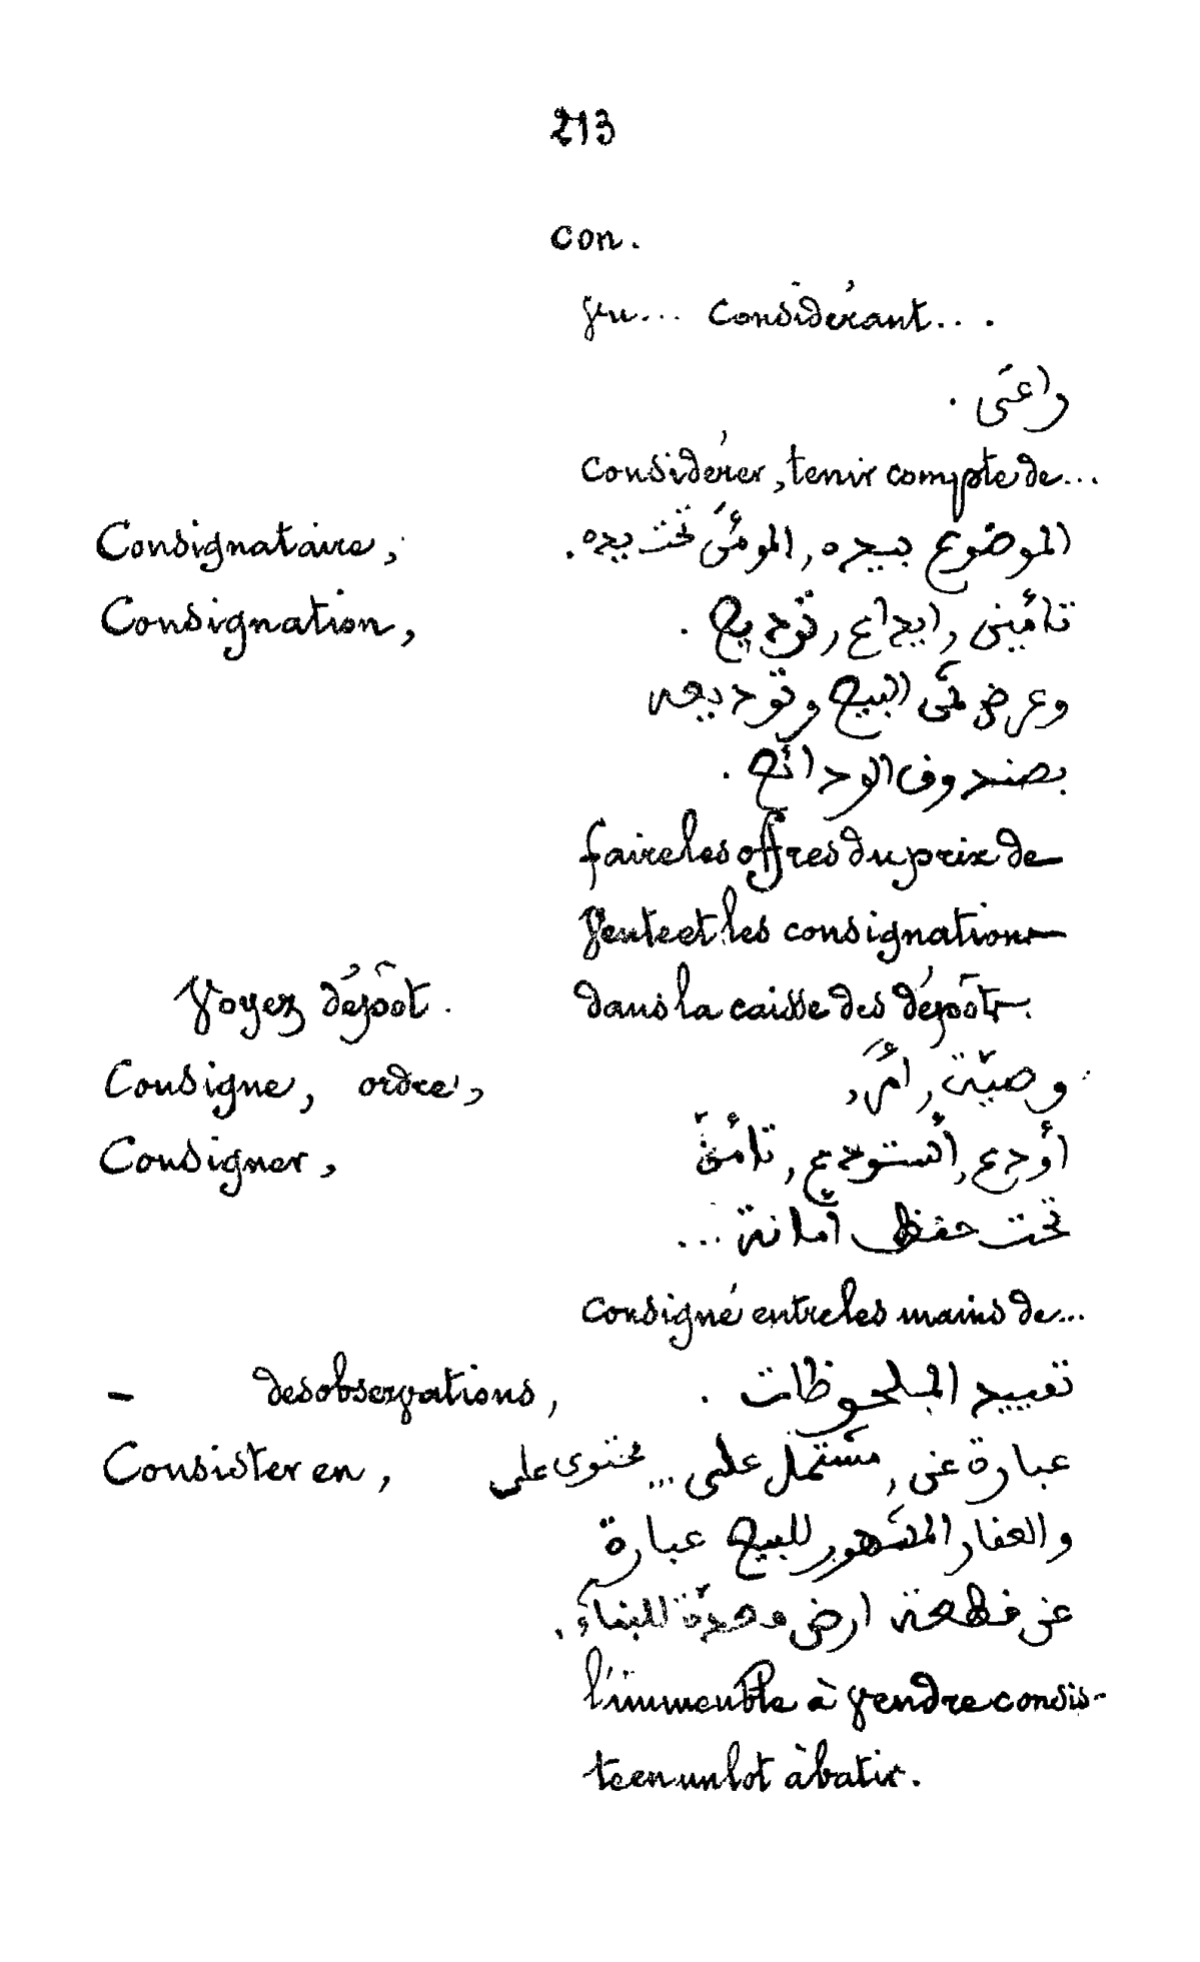 213
con.
vu... considérant...
راعى .
considérer, tenir compte de...
Consignataire, الموضوع بيده, المؤمَّن تحت يده.
Consignation, تأمين, ايداع, توديع .
وعرض ثمن البيع وتوديعه
بصندوق الودائع .
faire les offres du prix de
vente et les consignations
Voyez dépôt. dans la caisse des dépôts.
Consigne, ordre, وصيّة, امر,
Consigner, أودع, أستودع, تأمّن
تحت حفظ أمانة ...
consigné entre les mains de...
- des observations, تقييد الملحوظات .
Consister en, عبارة عن, مشتمل على ... محتوى على
والعقار المشهور للبيع عبارة
عن قطعة ارض معدّة للبناء.
l'immeuble à vendre consis-
te en un lot à batir.